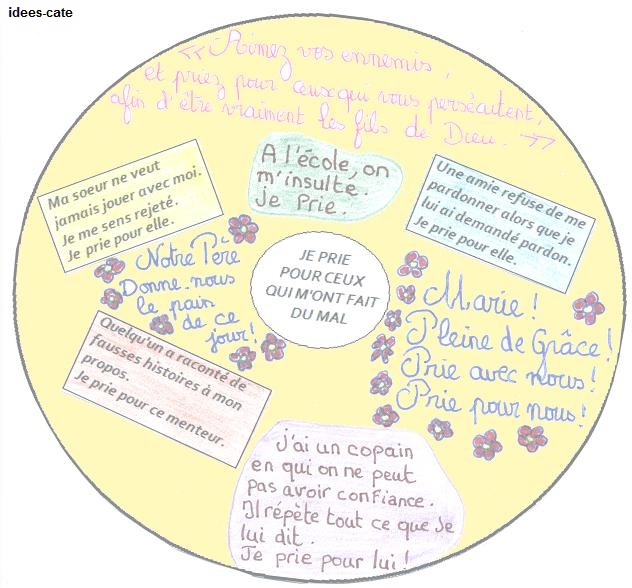 idees-cate
« Aimez vos ennemis,
et priez pour ceux qui vous persécutent,
afin d'être vraiment les fils de Dieu. »
Ma soeur ne veut
jamais jouer avec moi.
Je me sens rejeté.
Je prie pour elle.
A l'école, on
m'insulte.
Je Prie.
Une amie refuse de me
pardonner alors que je
lui ai demandé pardon.
Je prie pour elle.
Notre Père
Donne-nous
le pain
de ce
jour!
JE PRIE
POUR CEUX
QUI M'ONT FAIT
DU MAL
Marie!
Pleine de Grâce!
Prie avec nous!
Prie pour nous!
Quelqu'un a raconté de
fausses histoires à mon
propos.
Je prie pour ce menteur.
j'ai un copain
en qui on ne peut
pas avoir confiance.
Il répète tout ce que je
lui dit.
Je prie pour lui!